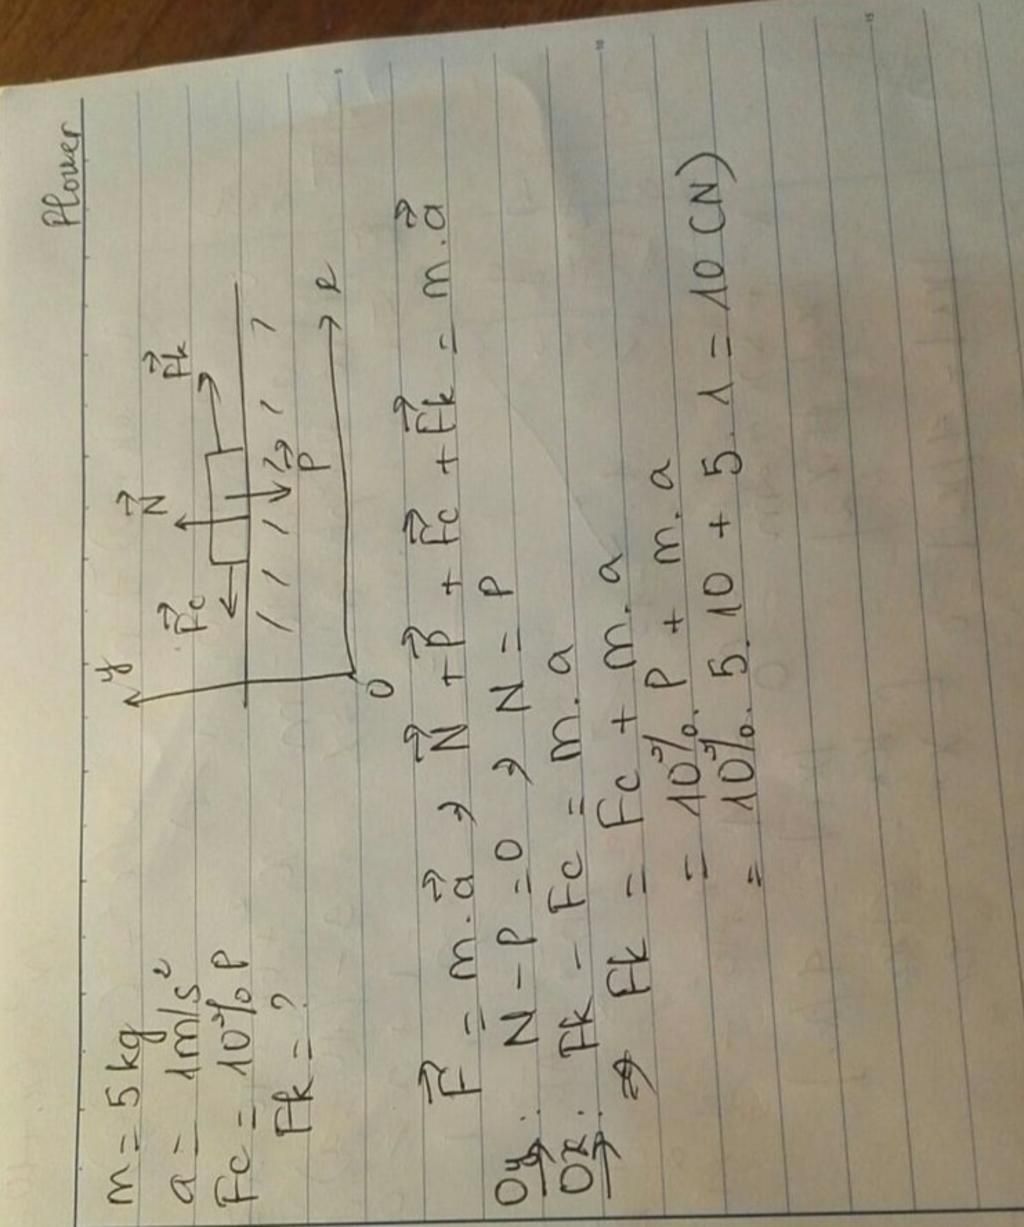 Plower
m = 5 kg
a = 1m/s²
Fc = 10% P
Fk = ?
y
F⃗c
N⃗
F⃗k
P⃗
O
x
F⃗ = m.a⃗ → N⃗ + P⃗ + F⃗c + F⃗k = m.a⃗
Oy: N - P = 0 → N = P
Ox: Fk - Fc = m.a
⇒ Fk = Fc + m.a
= 10%. P + m.a
= 10%. 5. 10 + 5. 1 = 10 (N)
5
10
15